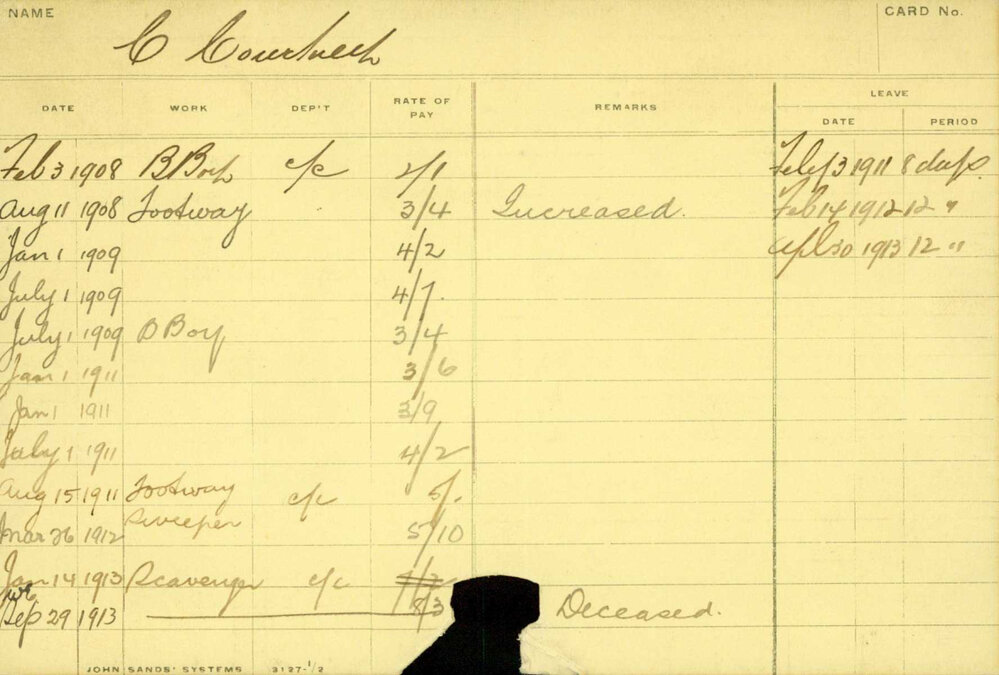 NAME CARD No.
C
DATE WORK DEP'T RATE OF PAY REMARKS LEAVE
DATE PERIOD
Feb 3 1908 B Boy c/c 2/1 Feb 13 1911 8 days
Aug 11 1908 Footway 3/4 Increased. Feb 14 1912 12 "
Jan 1 1909 4/2 Apl 30 1913 12 "
July 1 1909 4/7.
July 1 1909 B Boy 3/4
Jan 1 1911 3/6
Jan 1 1911 3/9
July 1 1911 4/2
Aug 15 1911 Footway c/c 5/.
Mar 26 1912 Sweeper 5/10
Jan 14 1913 Scavenger c/c
Sep 29 1913 8/3 Deceased.
JOHN SANDS' SYSTEMS 3127-1/2